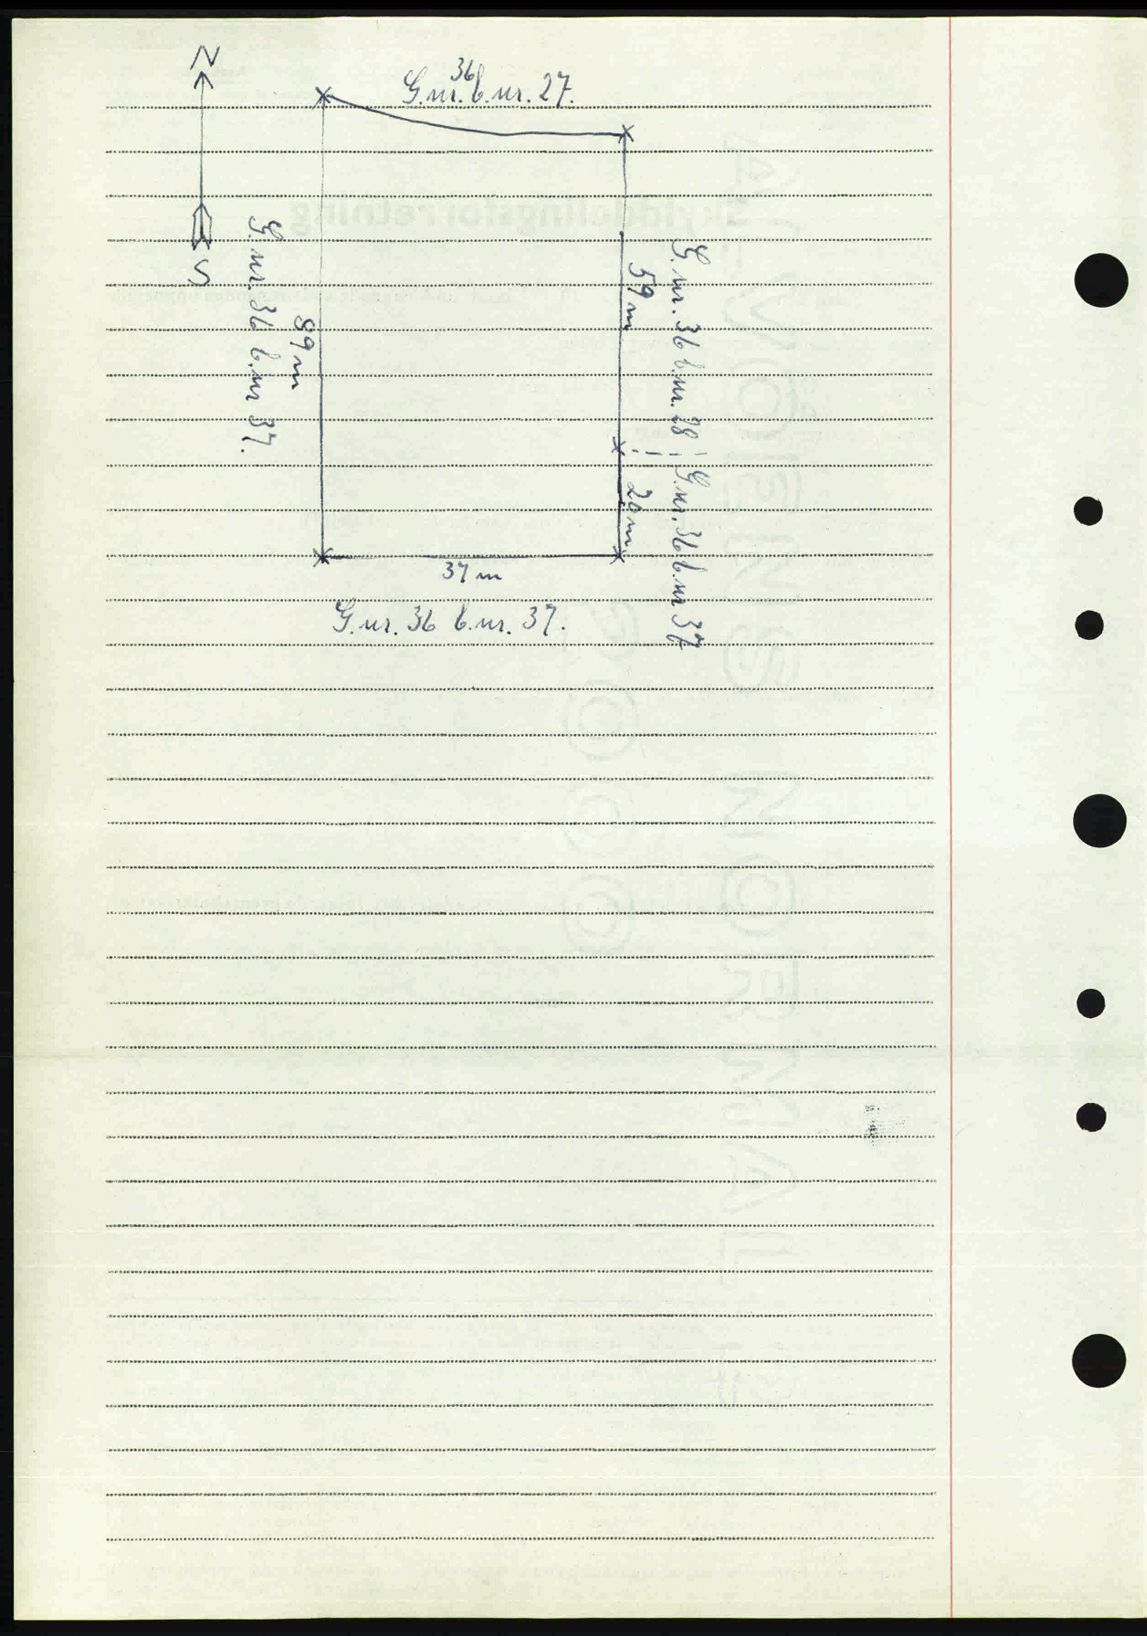 N
36
G.nr. b.nr. 27.
S
G.nr. 36 b.nr 37.
89 m
59 m
G.nr. 36 b.nr. 28
20 m
G.nr. 36 b.nr 37
37 m
G.nr. 36 b.nr. 37.